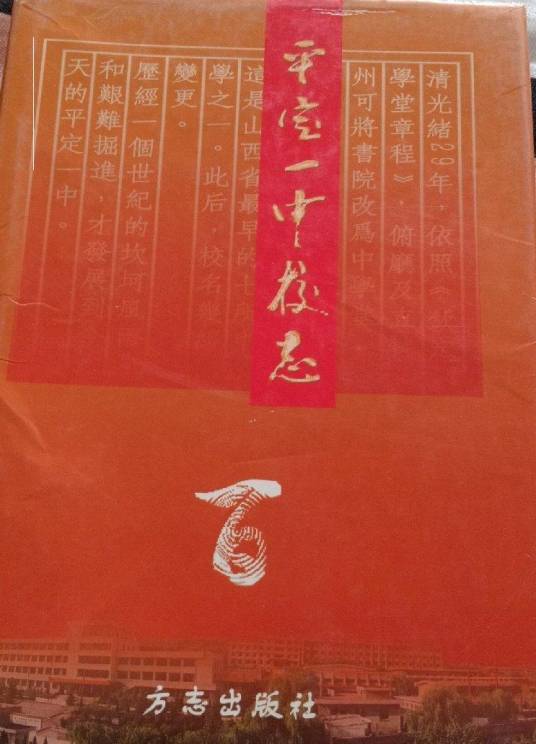 平定一中校志
清光緒29年，依照《
學堂章程》，俯廳及
州可將書院改爲中學
這是山西省最早的七
學之一。此后，校名
變更。
歷經一個世紀的坎坷風
和艱難掘進，才發展到
天的平定一中。
百
方志出版社